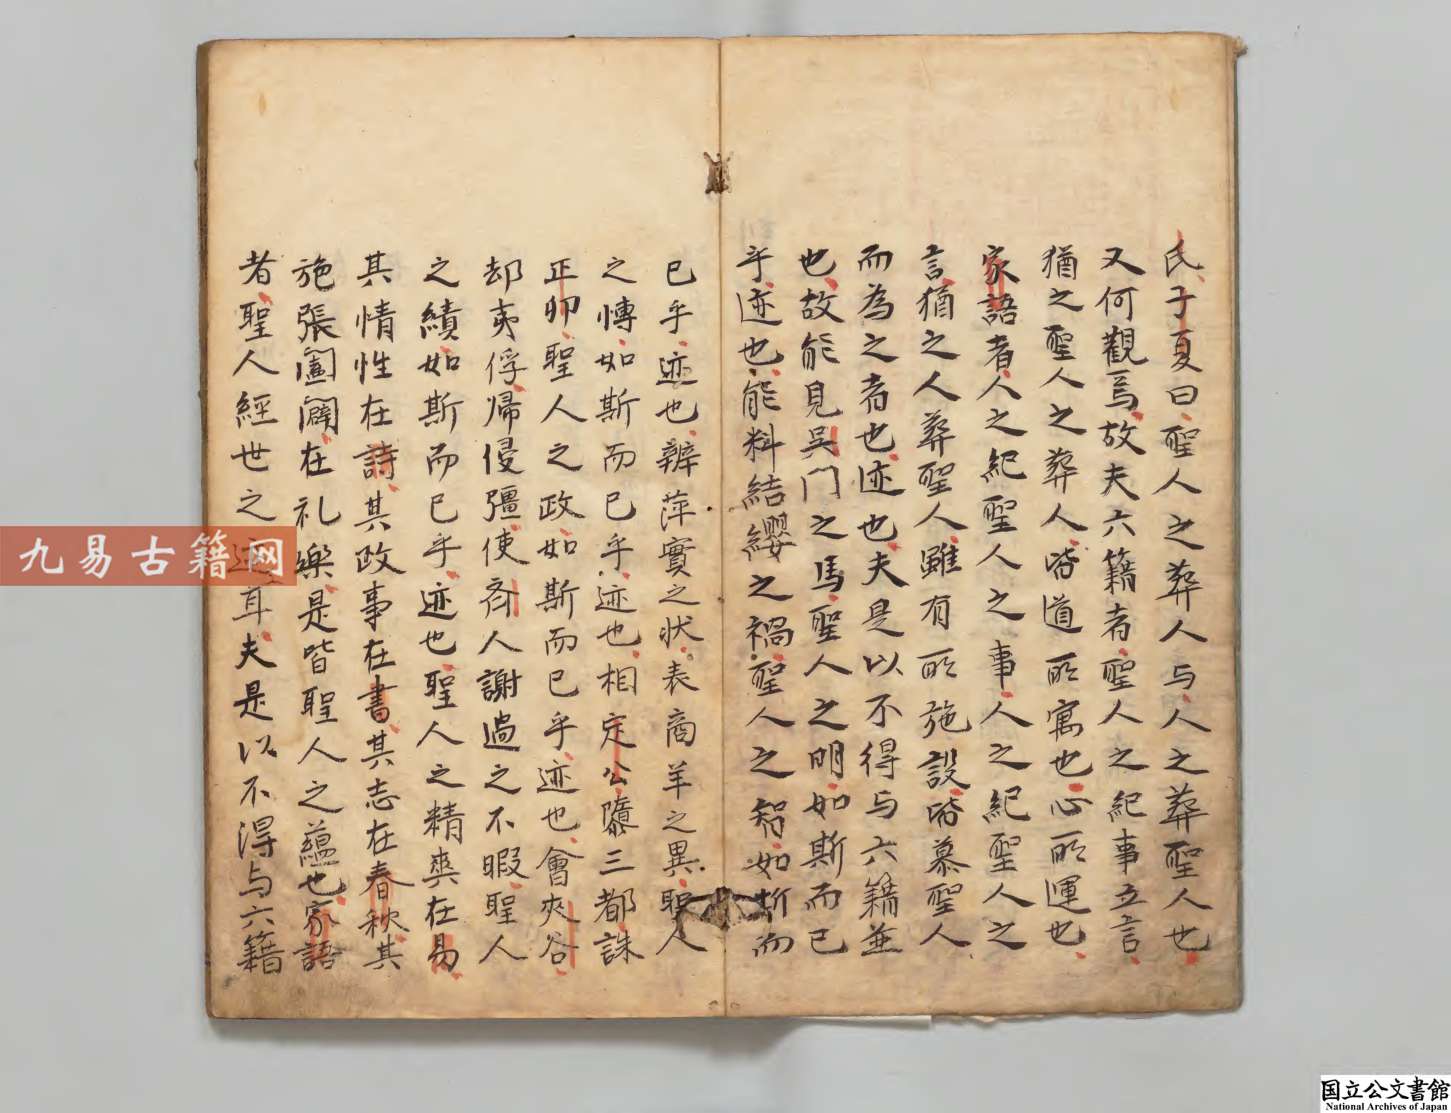 氏子夏曰聖人之葬人与人之葬聖人也
又何觀焉故夫六籍者聖人之紀事立言
猶之聖人之葬人皆道所寓也心所運也
家語者人之紀聖人之事人之紀聖人之
言猶之人葬聖人雖有所施設皆慕聖人
而為之者也迹也夫是以不得与六籍並
也故能見吳门之馬聖人之明如斯而已
乎迹也能料結纓之禍聖人之智如斯而
已乎迹也辨萍實之状表商羊之異聖人
之愽如斯而已乎迹也相定公隳三都誅
正卯聖人之政如斯而已乎迹也會夾谷
却夷俘帰侵彊使斉人謝過之不暇聖人
之績如斯而已乎迹也聖人之精爽在易
其情性在詩其政事在書其志在春秋其
施張闔闢在礼樂是皆聖人之蘊也家語
者聖人經世之迹耳夫是以不得与六籍
九易古籍网
国立公文書館
National Archives of Japan